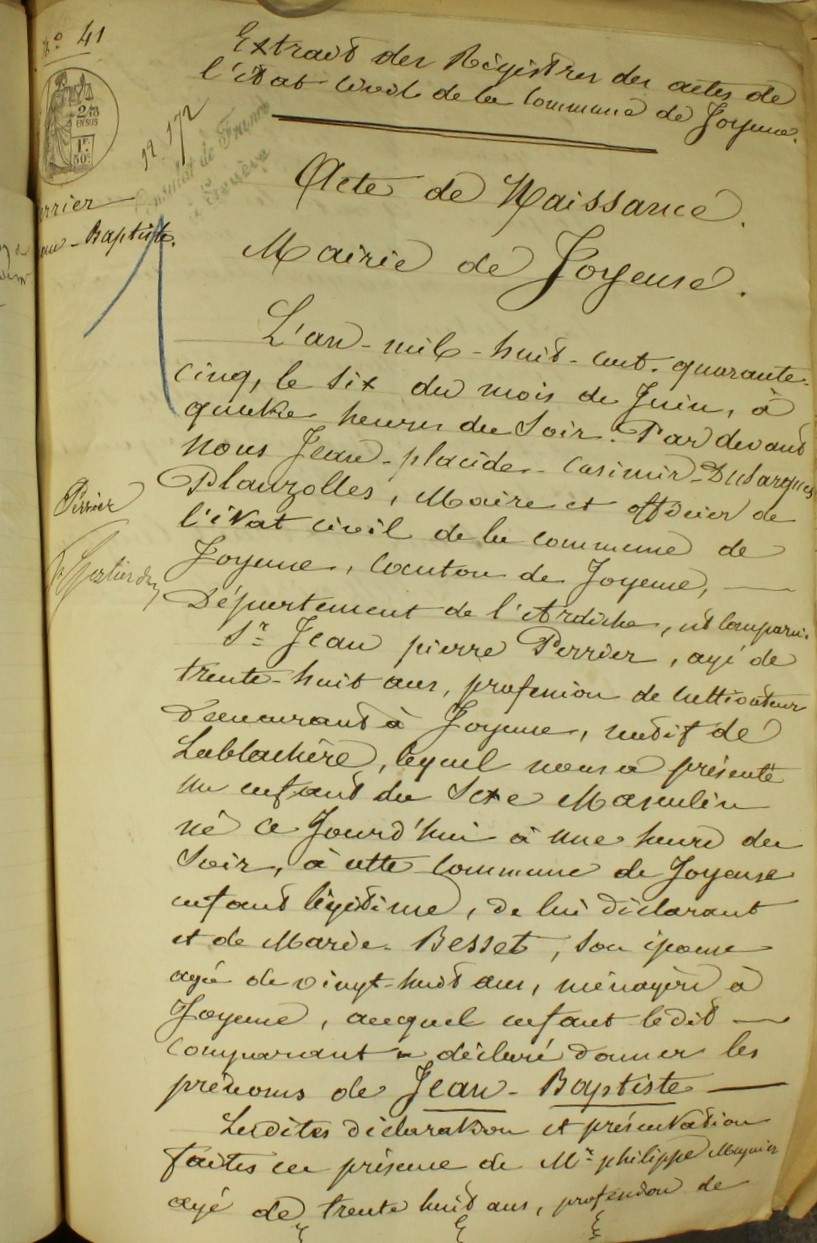 N° 41
Extrait des Régistres des actes de
l'état civil de la commune de Joyeuse.
2/10
EN SUS
1F.
50c.
N° 172
Consulat de France
à Genève
Perrier
Jean-Baptiste.
Acte de Naissance.
Mairie de Joyeuse.
L'an-mil-huit-cent-quarante-
cinq, le six du mois de Juin, à
quatre heures du Soir. Par devant
nous Jean-placide-Casimir-Dusargues
Planzolles, Maire et officier de
l'état civil de la commune de
Joyeuse, canton de Joyeuse,
Département de l'Ardèche, est comparu
Sr Jean pierre Perrier, agé de
trente-huit ans, profession de cultivateur
demeurant à Joyeuse, natif de
Lablachère, lequel nous a présenté
un enfant du Sexe Masculin
né ce Jourd'hui à une heure du
Soir, à cette commune de Joyeuse
enfant légitime, de lui déclarant
et de Marie-Besset, son épouse
agée de vingt-huit ans, ménagère à
Joyeuse, auquel enfant ledit
comparant a déclaré donner les
prénoms de Jean-Baptiste
Lesdites déclaration et présentation
faites en présence de Mr philippe
agé de trente huit ans, profession de
Perrier